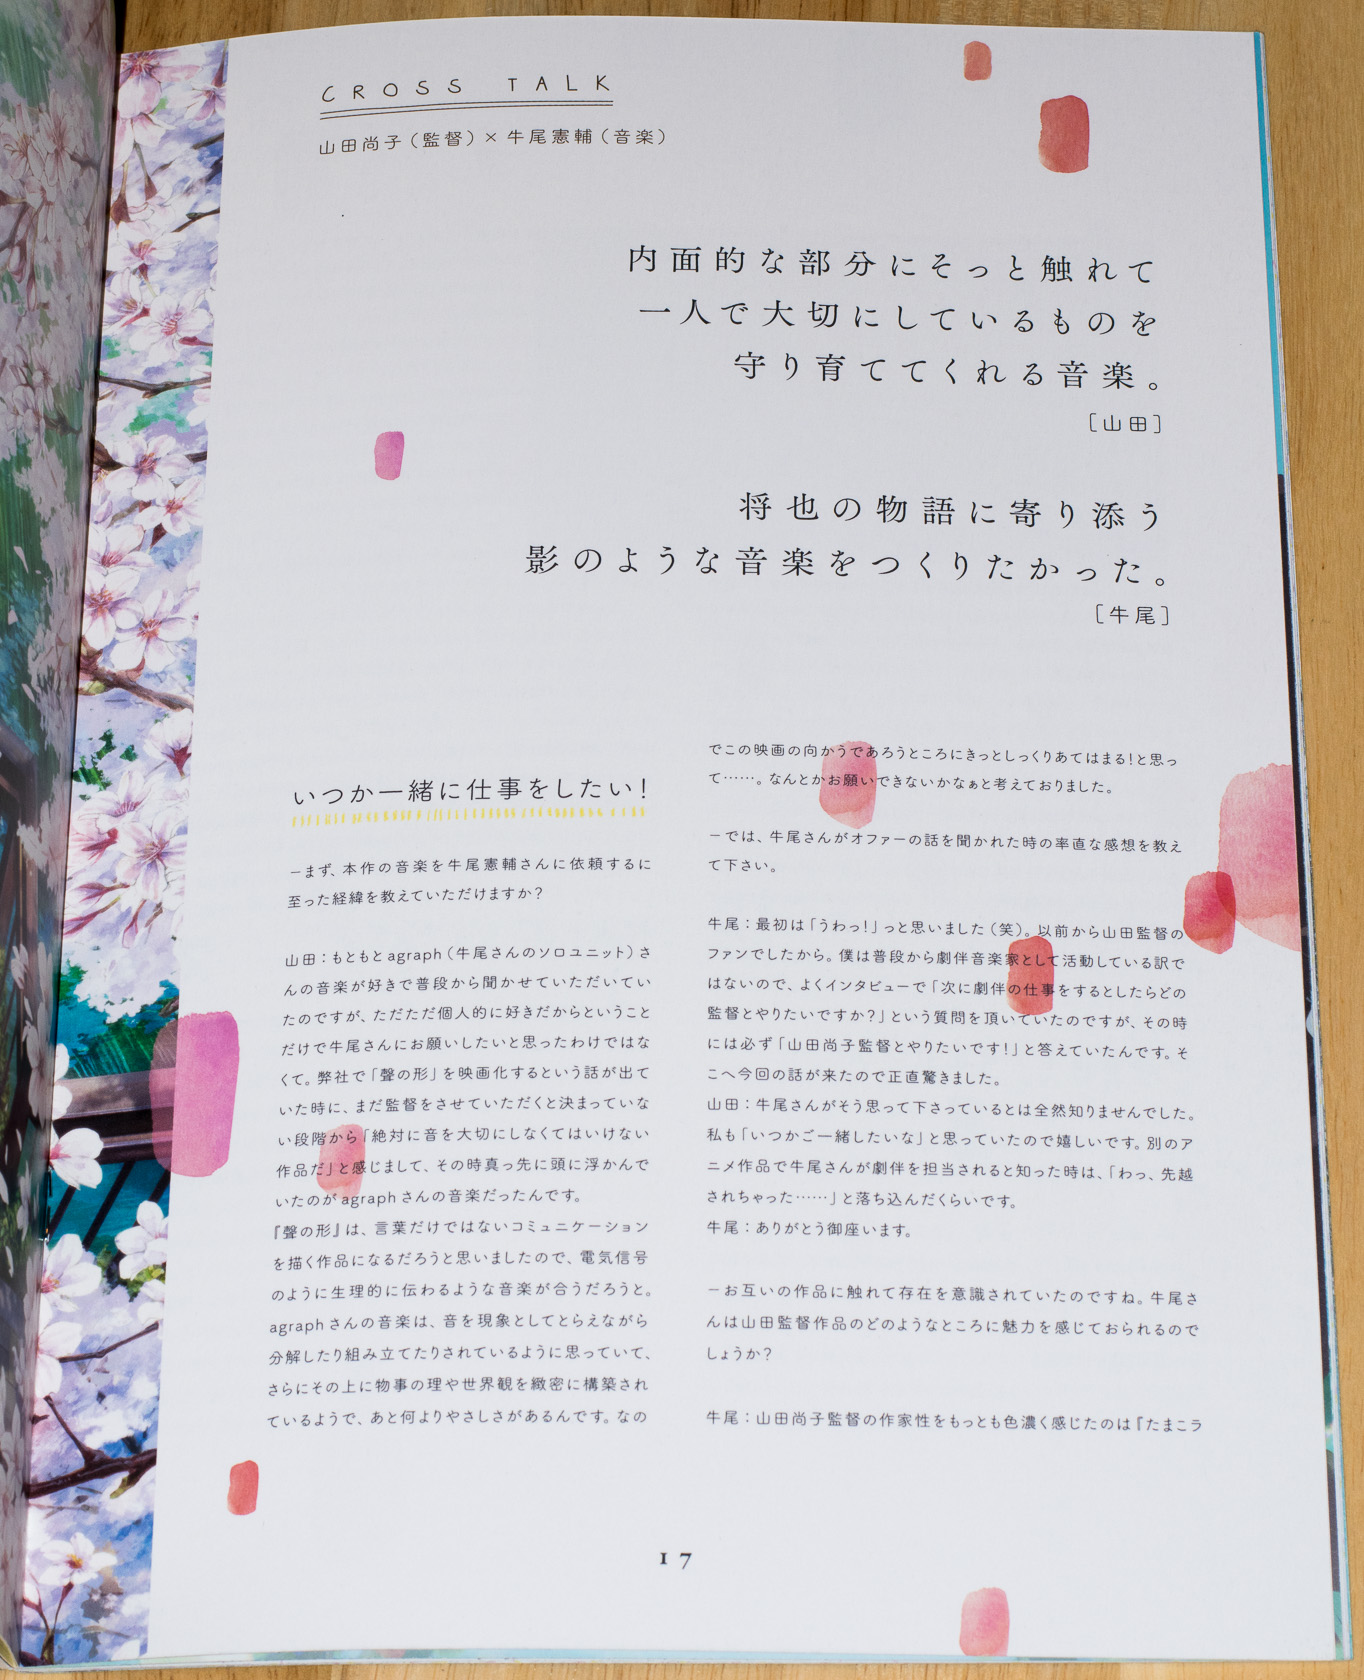 CROSS TALK
山田尚子（監督）×牛尾憲輔（音楽）
内面的な部分にそっと触れて
一人で大切にしているものを
守り育ててくれる音楽。
［山田］
将也の物語に寄り添う
影のような音楽をつくりたかった。
［牛尾］
いつか一緒に仕事をしたい！
－まず、本作の音楽を牛尾憲輔さんに依頼するに
至った経緯を教えていただけますか？
山田：もともとagraph（牛尾さんのソロユニット）さ
んの音楽が好きで普段から聞かせていただいてい
たのですが、ただただ個人的に好きだからということ
だけで牛尾さんにお願いしたいと思ったわけではな
くて。弊社で「聲の形」を映画化するという話が出て
いた時に、まだ監督をさせていただくと決まっていな
い段階から「絶対に音を大切にしなくてはいけない
作品だ」と感じまして、その時真っ先に頭に浮かんで
いたのがagraphさんの音楽だったんです。
『聲の形』は、言葉だけではないコミュニケーション
を描く作品になるだろうと思いましたので、電気信号
のように生理的に伝わるような音楽が合うだろうと。
agraphさんの音楽は、音を現象としてとらえながら
分解したり組み立てたりされているように思っていて、
さらにその上に物事の理や世界観を緻密に構築され
ているようで、あと何よりやさしさがあるんです。なの
でこの映画の向かうであろうところにきっとしっくりあてはまる！と思っ
て……。なんとかお願いできないかなぁと考えておりました。
－では、牛尾さんがオファーの話を聞かれた時の率直な感想を教え
て下さい。
牛尾：最初は「うわっ！」っと思いました（笑）。以前から山田監督の
ファンでしたから。僕は普段から劇伴音楽家として活動している訳で
はないので、よくインタビューで「次に劇伴の仕事をするとしたらどの
監督とやりたいですか？」という質問を頂いていたのですが、その時
には必ず「山田尚子監督とやりたいです！」と答えていたんです。そ
こへ今回の話が来たので正直驚きました。
山田：牛尾さんがそう思って下さっているとは全然知りませんでした。
私も「いつかご一緒したいな」と思っていたので嬉しいです。別のア
ニメ作品で牛尾さんが劇伴を担当されると知った時は、「わっ、先越
されちゃった……」と落ち込んだくらいです。
牛尾：ありがとう御座います。
－お互いの作品に触れて存在を意識されていたのですね。牛尾さ
んは山田監督作品のどのようなところに魅力を感じておられるので
しょうか？
牛尾：山田尚子監督の作家性をもっとも色濃く感じたのは『たまこラ
17